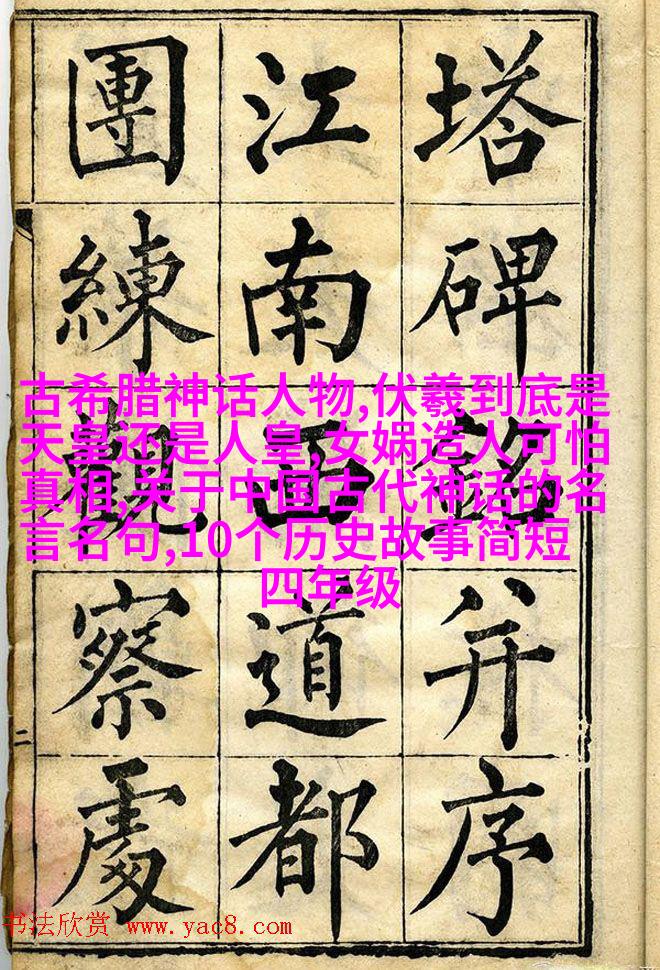 塔碑銘并序
江南西道都
團練觀察處
二
古希腊神话人物,伏羲到底是
天皇还是人皇,女娲造人可怕
真相,关于中国古代神话的名
言名句,10个历史故事简短
四年级
书法欣赏 www.yac8.com